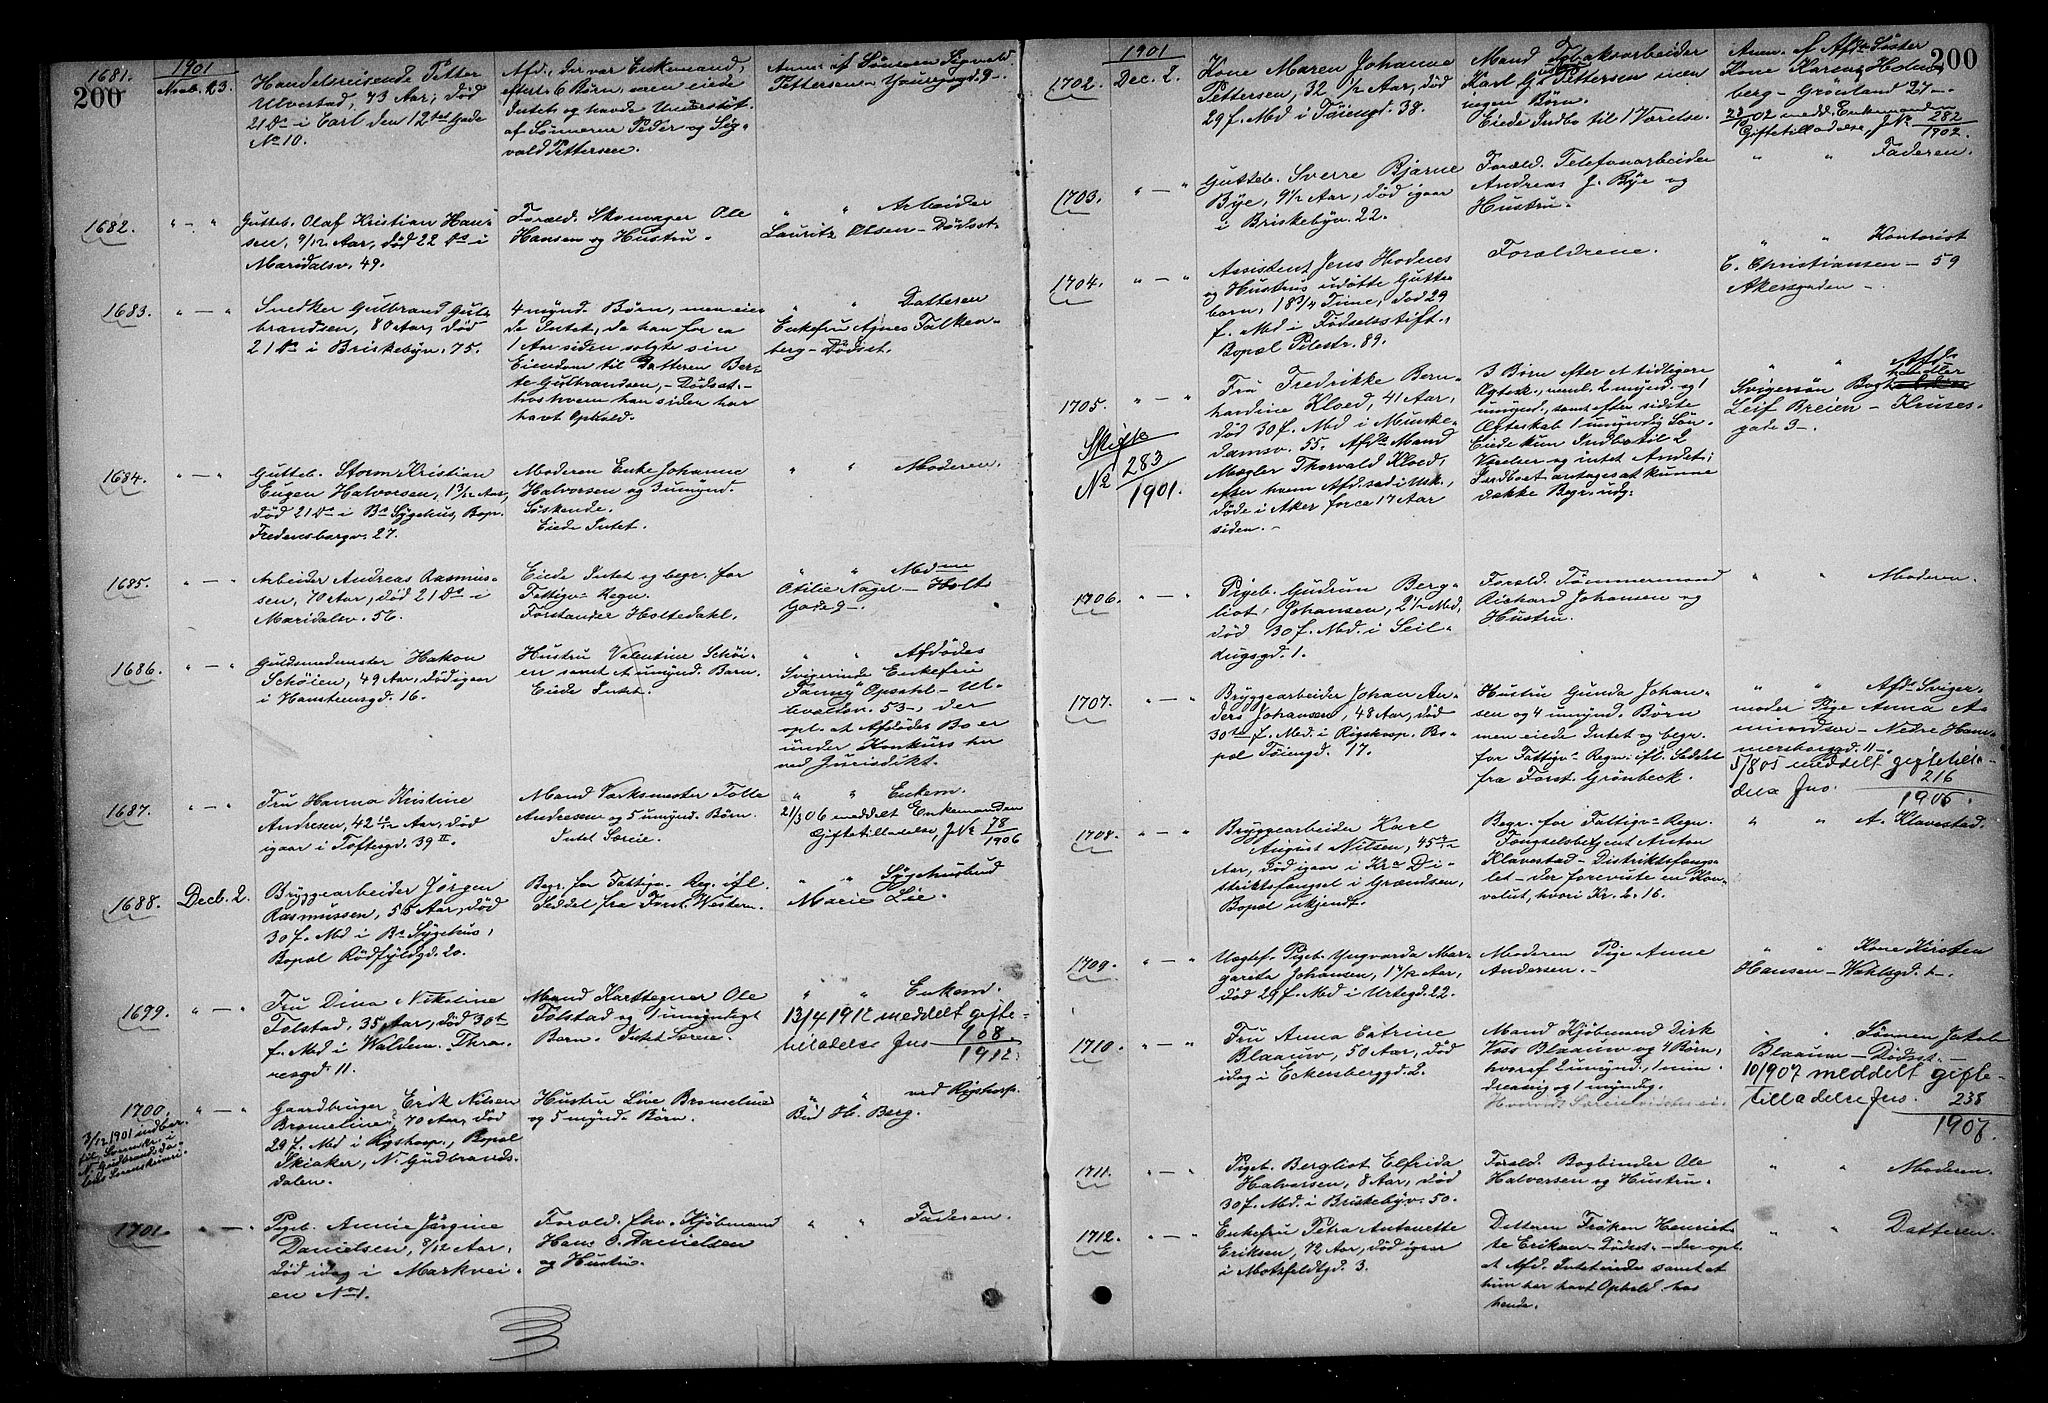 200
1901
1681.
Novb. 23.
Handelsreisende Petter
Ulvestad, 73 Aar, død
21 Ds i Carl den 12tes Gade
No 10.
Afd., der var Enkemand,
efterl. 6 Børn, men eiede
Intet og havde Understøt.
af Sønnerne Peder og Sig-
vald Pettersen.
Anm. af Sønnen Sigvald
Pettersen – Youngsgd. 9 –.
1682.
" — "
Gutteb. Olaf Kristian Han-
sen, 9/12 Aar, død 22 Ds i
Maridalsv. 49.
Foræld. Skomager Ole
Hansen og Hustru.
" " Arbeider
Lauritz Olsen – Dødsst.
1683.
" — "
Snedker Gulbrand Gul-
brandsen, 80 Aar, død
21 Ds i Briskebyv. 75.
4 mynd. Børn, men eie-
de Intet, da han for ca
1 Aar siden solgte sin
Eiendom til Datteren Ber-
te Gulbrandsen, – Dødsst. –
hos hvem han siden har
havt Ophold.
" " Datteren
Enkefru Agnes Falken-
berg – Dødsst.
1684.
" — "
Gutteb. Storm Kristian
Eugen Halvorsen, 13/12 Aar,
død 21 Ds i Bs Sygehus, Bop.
Fredensborgv. 27.
Moderen Enke Johanne
Halvorsen og 3 umynd.
Søskende.
Eiede Intet.
" " Moderen.
1685.
" — "
Arbeider Andreas Rasmus-
sen, 70 Aar, død 21 Ds i
Maridalsv. 56.
Eiede Intet og begr. for
Fattigv. Regn.
Forstander Holtedahl.
" " Mdme
Otilie Nagel – Holts
Gade –.
1686.
" — "
Guldsmedmester Hakon
Schøien, 49 Aar, død igaar
i Hansteensgd. 16.
Hustru Valentine Schøi-
en samt et umynd. Barn.
Eiede Intet.
" " Afdødes
Svigerinde Enkefru
Fanny Opsahl – Ul-
levoldsv. 53 –, der
opl. at Afdødes Bo er
under Konkurs her
ved Jurisdikt.
1687.
" — "
Fru Hanna Kristine
Andresen, 42 Aar, død
igaar i Toftesgd. 39 II.
Mand Værksmester Tolle
Andresen og 5 umynd. Børn.
Intet Særeie.
" " Enkem.
21/3 06 meddelt Enkemanden
Giftetilladelse, J.No 78/1906
1688.
Decb. 2.
Bryggearbeider Jörgen
Rasmussen, 56 Aar, død
30 f. Md i Bs Sygehus,
Bopæl Rødfyldgd. 20.
Begr. for Fattigv. Reg. ifl.
Seddel fra Forst. Western.
" " Sygehusbud
Marie Lie.
1699.
" — "
Fru Dina Nikoline
Tolstad, 35 Aar, død 30te
f. Md i Waldem. Thra-
nesgd. 11.
Mand Karttegner Ole
Tolstad og 1 umyndigt
Barn. Intet Særeie.
" " Enkem.
13/4 1912 meddelt gifte-
tilladelse Jns 108/1912.
1700.
3/12 1901 indber.
til Sorenskr. i
N. Gudbrandsda-
lens Sorenskriveri.
" — "
Gaardbruger Erik Nilsen
Bromeline, 70 Aar, død
29 f. Md i Rigshosp., Bopæl
Skiaker, N. Gudbrands-
dalen.
Hustru Live Bromeline
og 5 mynd. Børn.
" " ved Rigshosp.
Bud H. Berg.
1701.
" — "
Pigeb. Annie Jørgine
Danielsen, 8/12 Aar,
død idag i Markvei-
en No 1.
Foræld. fhv. Kjøbmand
Hans O. Danielsen
og Hustru.
" " Faderen.
200
1901
1702.
Dec. 2.
Kone Maren Johanne
Pettersen, 32 1/2 Aar, død
29 f. Md i Tøiengd. 38.
Mand Tobaksarbeider
Karl G. Pettersen men
ingen Børn.
Eiede Indbo til 1 Værelse.
Anm. af Afds Søster
Kone Karen Holm-
berg – Grønland 27 –.
02 medd. Enkemanden
Giftetilladelse, J.No 282/1902.
1703.
" — "
Gutteb. Sverre Bjarne
Bye, 9 1/2 Aar, død igaar
i Briskebyv. 22.
Foræld. Telefonarbeider
Andreas J. Bye og
Hustru.
" " Faderen.
1704.
" — "
Assistent Jens Hodnes
og Hustrus udøbte Gutte-
barn, 18 3/4 Time, død 29
f. Md i Fødselsstift.,
Bopæl Pilestr. 89.
Forældrene.
" " Kontorist
C. Christiansen – 59
Akersgaden –.
1705.
Skifte
No 283/1901.
" — "
Fru Fredrikke Bern-
hardine Kloed, 41 Aar,
død 30 f. Md i Munke-
damsv. 55. Afds Mand
Mægler Thorvald Kloed,
efter hvem Afd. sad i Usk.,
døde i Aker for ca 17 Aar
siden. –
3 Børn efter et tidligere
Ægtesk., nml. 2 mynd. og 1
umynd., samt efter sidste
Ægteskab 1 umyndig Søn.
Eiede kun Indbo til 2
Værelser og intet Andet;
Indboet antages at kunne
dække Begr. udg.
" " Afds
Svigersøn Boghandler
Leif Breien – Kruses-
gade 3 –.
1706.
" — "
Pigeb. Gudrun Berg-
liot Johansen, 2 1/2 Md,
død 30 f. Md. i Seil-
dugsgd. 1.
Foræld. Tømmermand
Richard Johansen og
Hustru.
" " Moderen.
1707.
" — "
Bryggearbeider Johan An-
ders Johansen, 48 Aar, død
30te f. Md. i Rigshosp. Bo-
pæl Tøiengd. 17.
Hustru Gunda Johan-
sen og 4 umynd. Børn
men eiede Intet og begr.
for Fattigv. Regn. ifl. Seddel
fra Forst. Grönbeck.
" " Afds Sviger-
moder Pige Anna A-
mundsen – Nedre Ham-
mersborggd. 11 –.
5/8 05 meddelt giftetil-
delse Jns. 216/1905.
1708.
" — "
Bryggearbeider Karl
August Nilsen, 45
Aar, død igaar i Kra Di-
striktsfængsel i Grændsen,
Bopæl ukjendt.
Begr. for Fattigv. Regn.
Fængselsbetjent Anton
Klavestad – Distriktsfængs-
let – der foreviste en Kon-
volut, hvori Kr. 2.16.
" " A. Klavestad.
1709.
" — "
Uegtef. Pigeb. Yngvarda Mar-
gareta Johansen, 1 7/12 Aar,
død 29 f. Md i Urtegd. 22.
Moderen Pige Anne
Andersen. –
" " Kone Kirsten
Hansen – Wahlsgd. 2 –.
1710.
" — "
Fru Anna Catrine
Blaauw, 50 Aar, død
idag i Eckersberggd. 2.
Mand Kjøbmand Dirk
Voss Blaauw og 4 Børn,
hvoraf 2 umynd., 1 min-
dreaarig og 1 myndig.
Hvorvidt Særeie vidstes ei.
" " Sønnen Jakob
Blaauw – Dødsst. –
10/9 07 meddelt gifte-
tilladelse Jns. 238/1907.
1711.
" — "
Pigeb. Bergliot Elfrida
Halvorsen, 8 Aar, død
30 f. Md. i Briskebyv. 50.
Foræld. Bogbinder Ole
Halvorsen og Hustru.
" " Moderen.
1712.
" — "
Enkefru Petra Antonette
Eriksen, 72 Aar, død igaar
i Motzfeldtgd. 3.
Datteren Frøken Henriet-
te Eriksen – Dødsst. – der opl.
at Afd. Intet eiede samt at
hun har havt Ophold hos
hende.
" " Datteren.